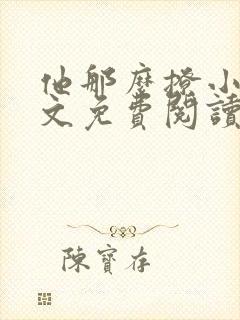 他那麼撩小
文免費閱讀
陳寶存